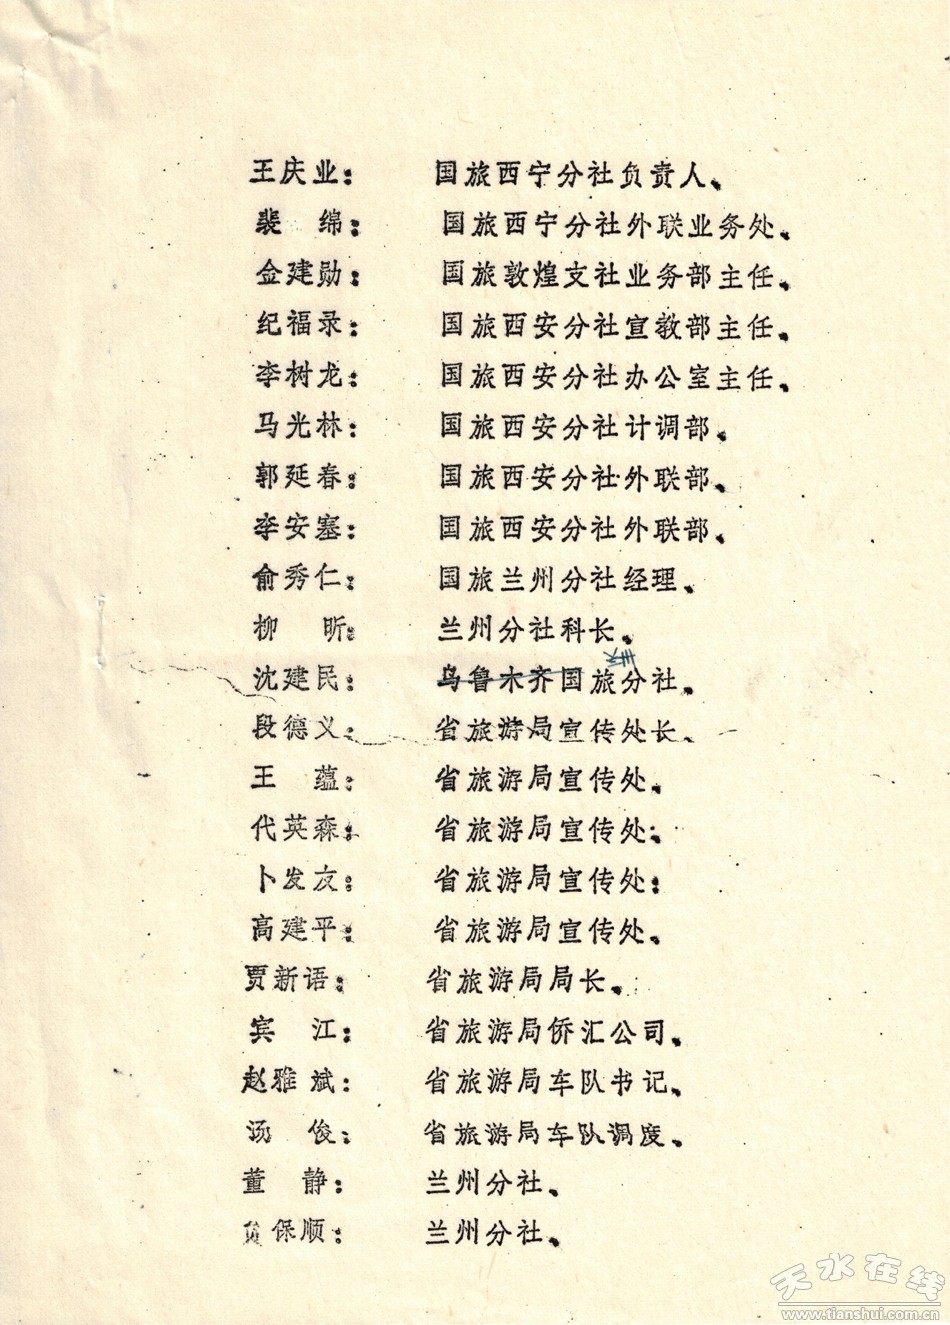 王庆业： 国旅西宁分社负责人、
裴 绵： 国旅西宁分社外联业务处、
金建勋： 国旅敦煌支社业务部主任、
纪福录： 国旅西安分社宣教部主任、
李树龙： 国旅西安分社办公室主任、
马光林： 国旅西安分社计调部、
郭延春： 国旅西安分社外联部、
李安塞： 国旅西安分社外联部、
俞秀仁： 国旅兰州分社经理、
柳 昕： 兰州分社科长、
沈建民： 乌鲁木齐国旅分社、
段德义： 省旅游局宣传处长、
王 蕴： 省旅游局宣传处、
代英森： 省旅游局宣传处：
卜发友： 省旅游局宣传处：
高建平： 省旅游局宣传处、
贾新语： 省旅游局局长、
宾 江： 省旅游局侨汇公司、
赵雅斌： 省旅游局车队书记、
汤 俊： 省旅游局车队调度、
董 静： 兰州分社、
保顺： 兰州分社、
天水在线
www.tianshui.com.cn